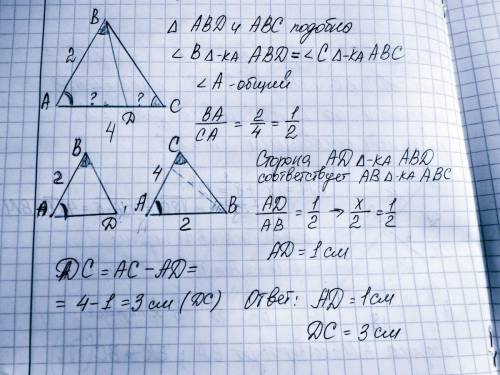 Δ ABD и ABC подобно
∠ B Δ-ка ABD = ∠C Δ-ка ABC
∠A - общий
BA/CA = 2/4 = 1/2
B
2
A ? D ? C
4
B
2
A D
C
4
A B
2
Сторона AD Δ-ка ABD
соответствует AB Δ-ка ABC
AD/AB = 1/2 → x/2 = 1/2
AD = 1 см
DC = AC - AD =
= 4-1 = 3 см (DC)
Ответ: AD = 1 см
DC = 3 см